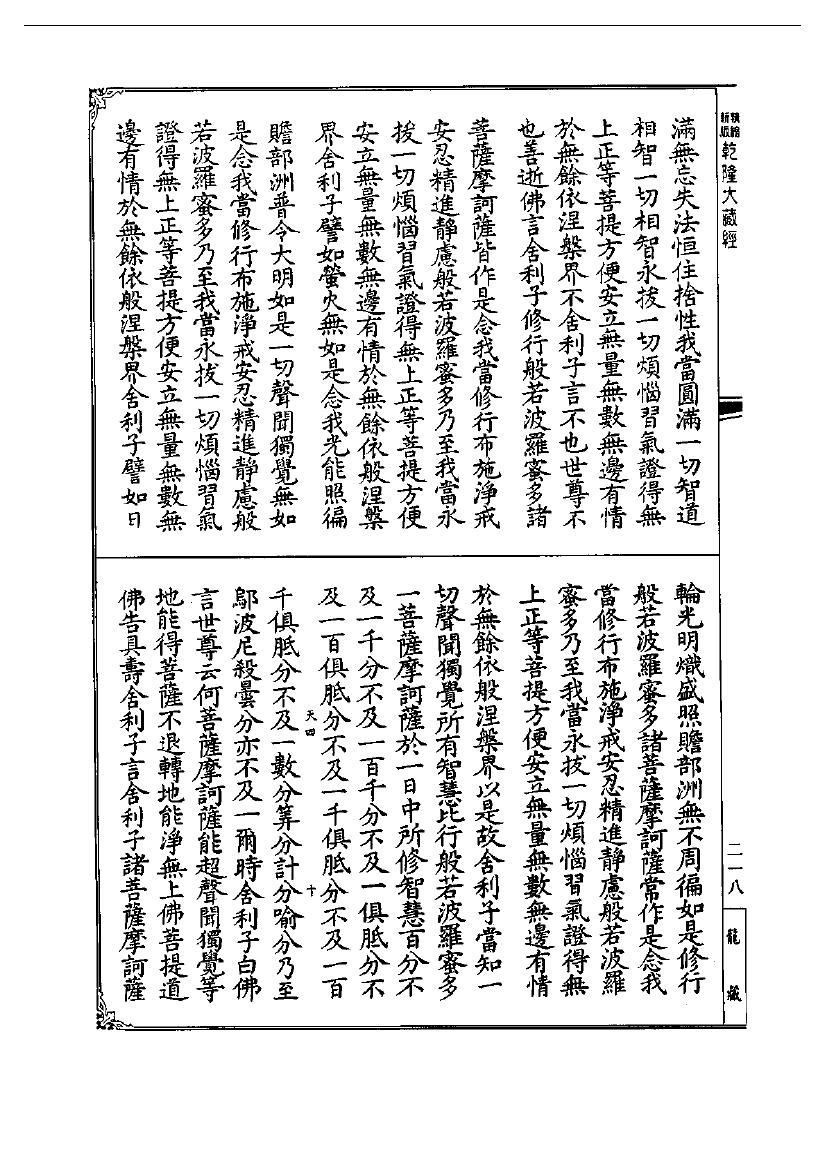 新版精繪乾隆大藏經
滿無忘失法恒住捨性我當圓滿一切智道
相智一切相智永拔一切煩惱習氣證得無
上正等菩提方便安立無量無數無邊有情
於無餘依涅槃界不舍利子言不也世尊不
也善逝佛言舍利子修行般若波羅蜜多諸
菩薩摩訶薩皆作是念我當修行布施淨戒
安忍精進靜慮般若波羅蜜多乃至我當永
拔一切煩惱習氣證得無上正等菩提方便
安立無量無數無邊有情於無餘依般涅槃
界舍利子譬如螢火無如是念我光能照徧
贍部洲普令大明如是一切聲聞獨覺無如
是念我當修行布施淨戒安忍精進靜慮般
若波羅蜜多乃至我當永拔一切煩惱習氣
證得無上正等菩提方便安立無量無數無
邊有情於無餘依般涅槃界舍利子譬如日
輪光明熾盛照贍部洲無不周徧如是修行
般若波羅蜜多諸菩薩摩訶薩常作是念我
當修行布施淨戒安忍精進靜慮般若波羅
蜜多乃至我當永拔一切煩惱習氣證得無
上正等菩提方便安立無量無數無邊有情
於無餘依般涅槃界以是故舍利子當知一
切聲聞獨覺所有智慧比行般若波羅蜜多
一菩薩摩訶薩於一日中所修智慧百分不
及一千分不及一百千分不及一俱胝分不
及一百俱胝分不及一千俱胝分不及一百
天四 十
千俱胝分不及一數分筭分計分喻分乃至
鄔波尼殺曇分亦不及一爾時舍利子白佛
言世尊云何菩薩摩訶薩能超聲聞獨覺等
地能得菩薩不退轉地能淨無上佛菩提道
佛告具壽舍利子言舍利子諸菩薩摩訶薩
二一八
龍藏